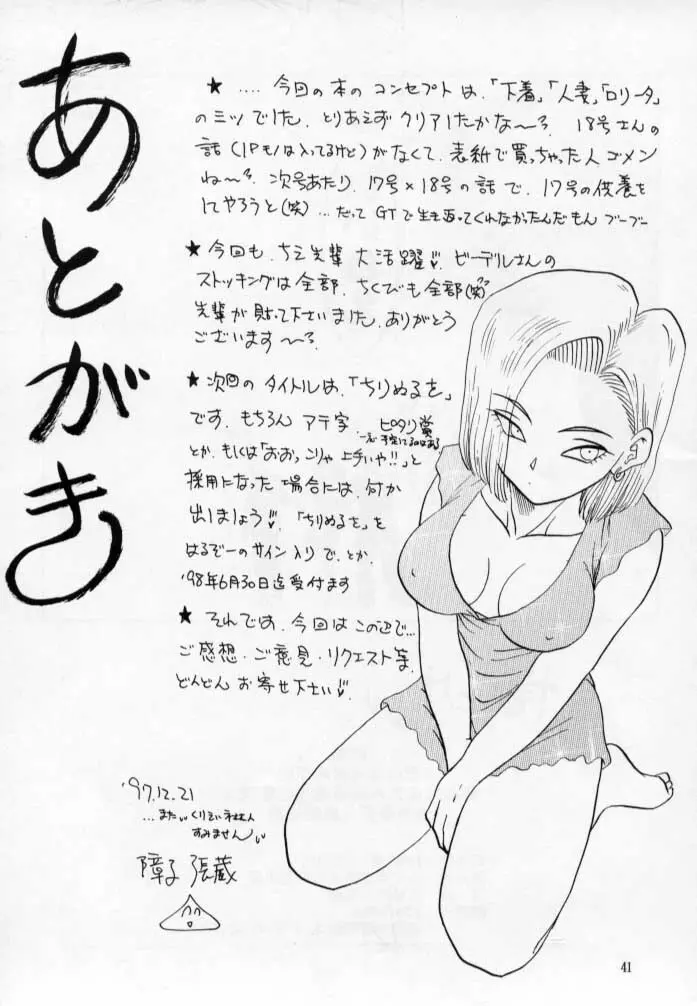 あとがき
★ .... 今回の本のコンセプトは、「下着」、「人妻」、「ロリータ」
の三ツでした。とりあえずクリアしたかな〜? 18号さんの
話(1Pモノは入ってるけど)がなくて、表紙で買っちゃった人ゴメン
ね〜?。次号あたり、17号×18号の話で、17号の供養を
してやろうと(笑)...だって GTで生き返ってくれなかったんだもん ブーブー
★ 今回も、ちえ先輩 大活躍。ビーデルさんの
ストッキングは全部、ちくびも全部(笑)
先輩が貼って下さいました。ありがとう
ございます〜?
★ 次回のタイトルは、「ちりぬるを」
です。もちろん アテ字。ピタリ賞
とか、もしくは「おおっこりゃ上手いや!!」と
採用になった場合には、何か
出しましょう。「ちりぬるを」を
はるぞーのサイン入りで、とか。
'98年6月30日迄受付ます
★ それでは、今回はこの辺で...
ご感想・ご意見・リクエスト等
どんどんお寄せ下さい。
'97.12.21
...また
すみません
障子 張蔵
41